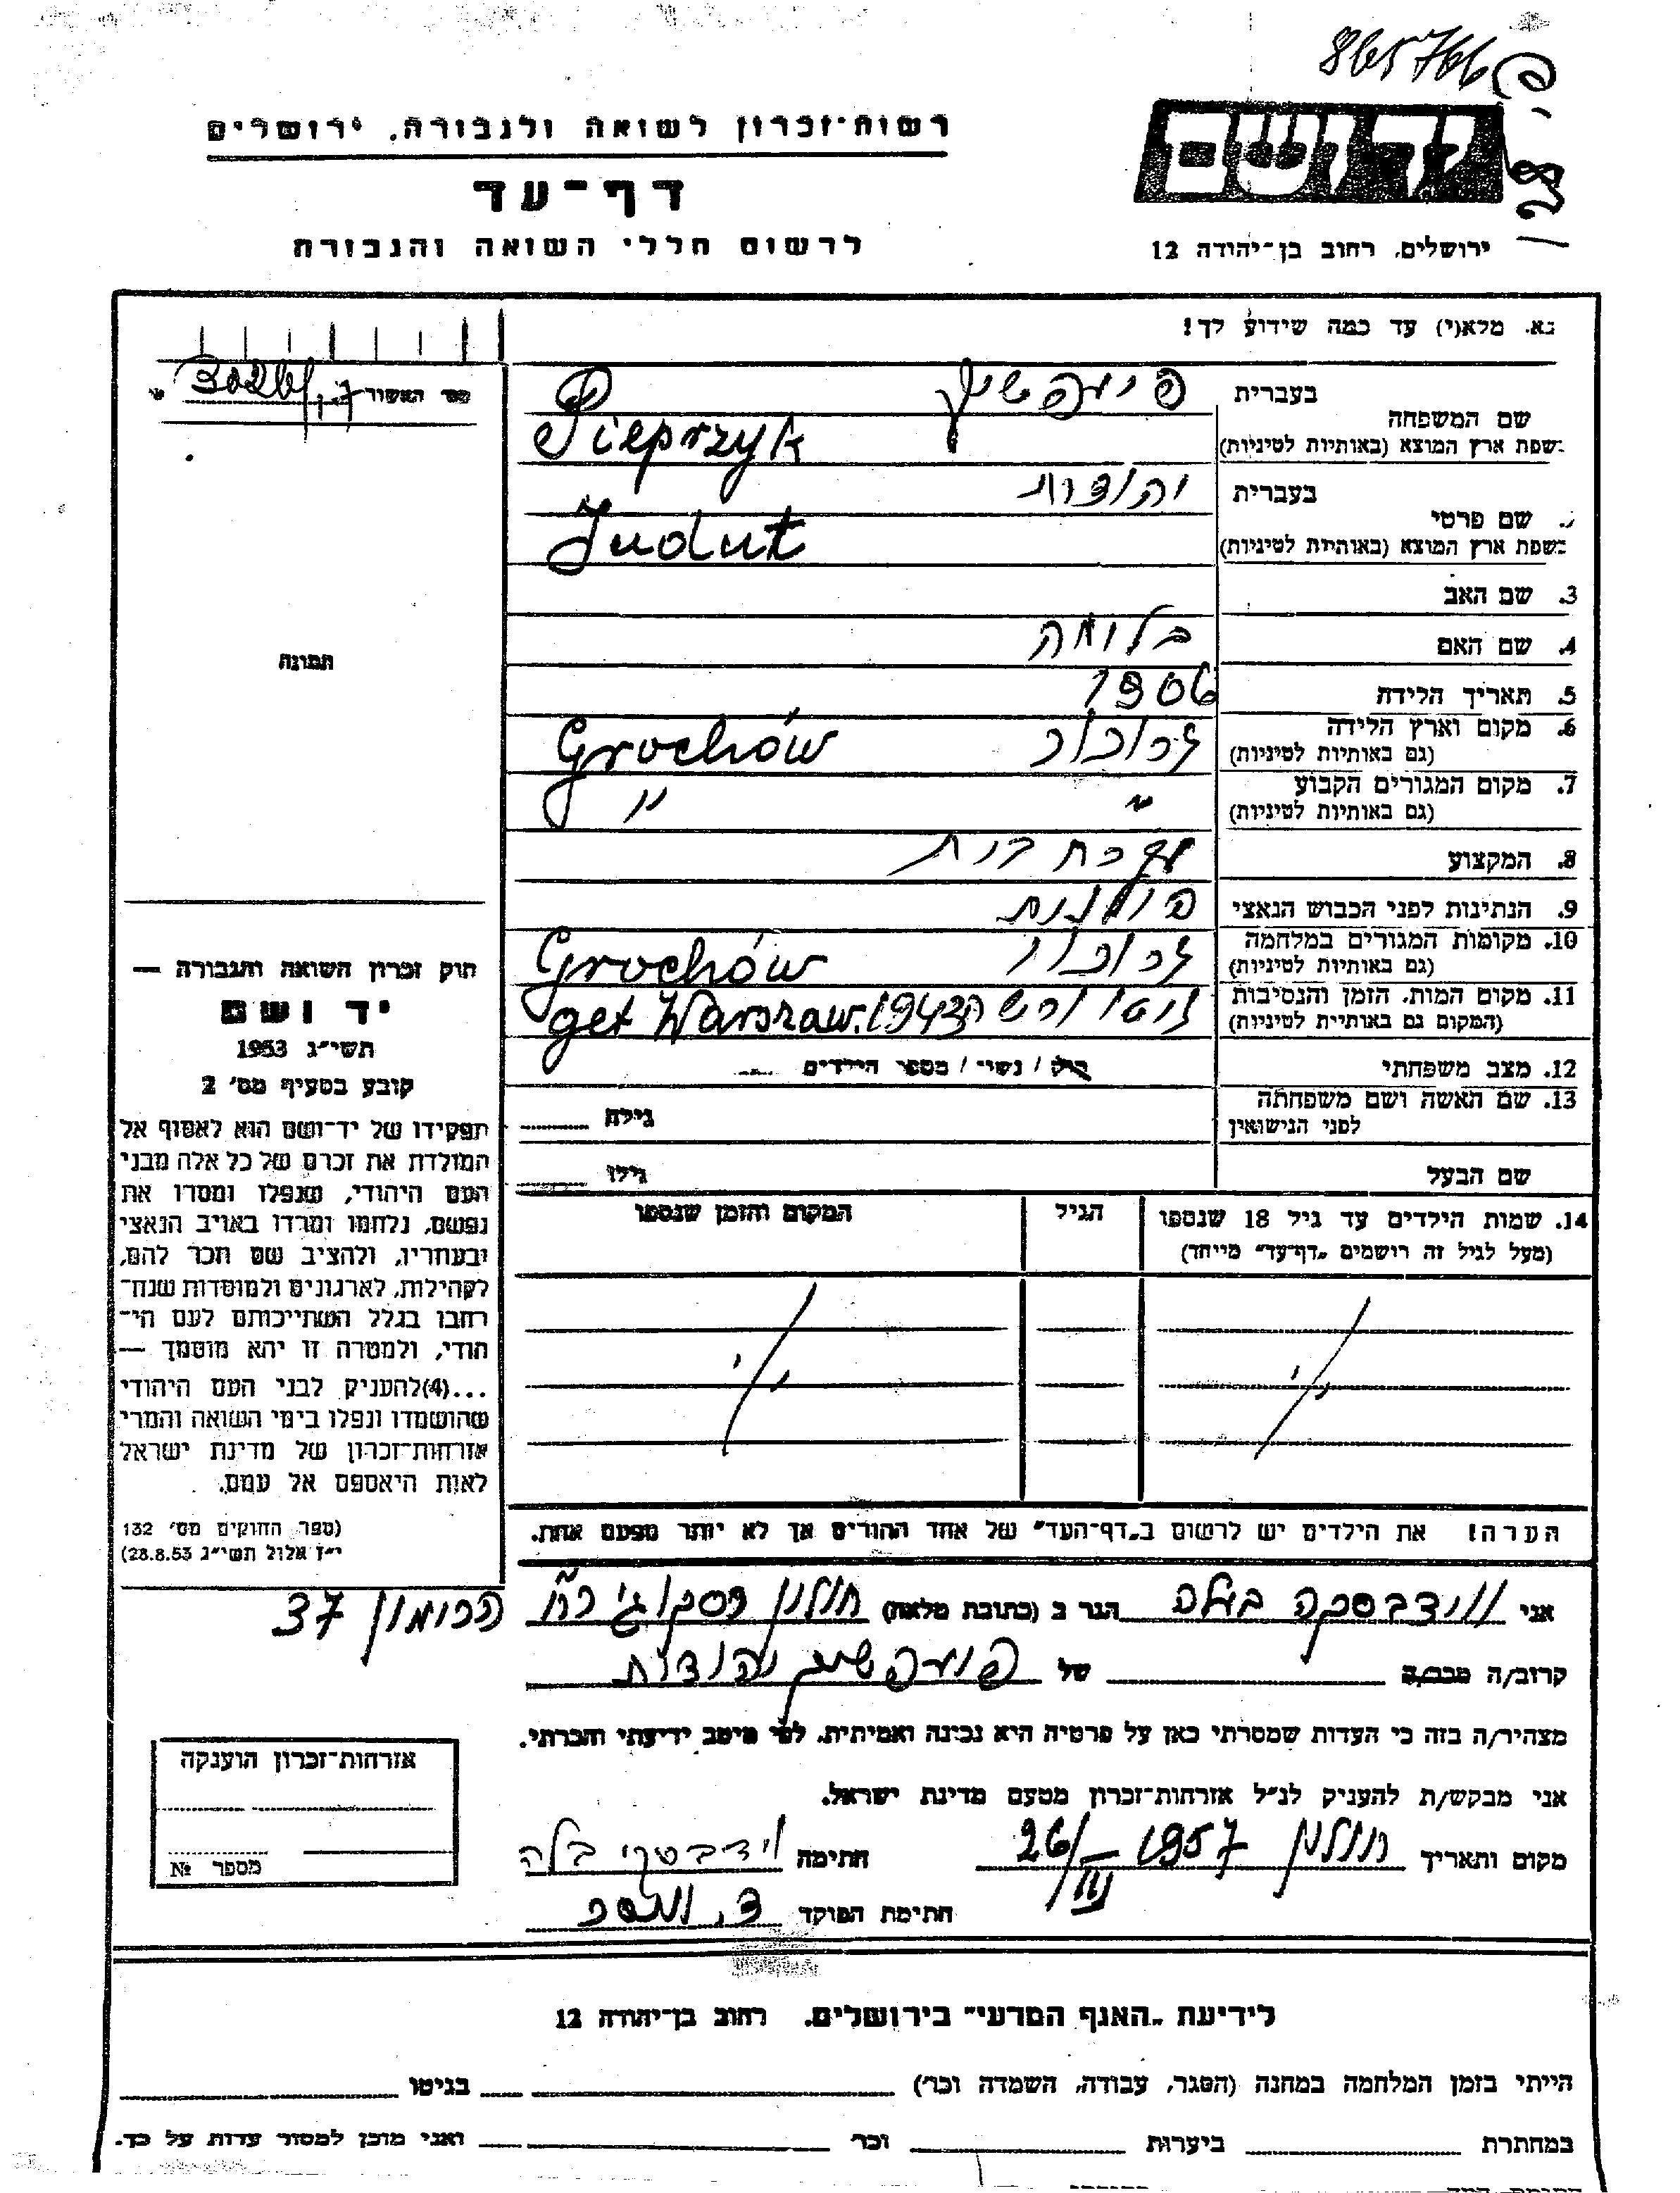 865766
רשות־זכרון לשואה ולגבורה, ירושלים
יד ושם
דף־עד
לרשום חללי השואה והגבורה
ירושלים, רחוב בן־יהודה 12
נא. מלא(י) עד כמה שידוע לך!
בעברית פיעפשיק
שם המשפחה
בשפת ארץ המוצא (באותיות לטיניות) Pieprzyk
בעברית יהודית
שם פרטי
בשפת ארץ המוצא (באותיות לטיניות) Judut
3. שם האב
4. שם האם בלומה
5. תאריך הלידה 1906
6. מקום וארץ הלידה גרוכוב Grochów
(גם באותיות לטיניות)
7. מקום המגורים הקבוע " "
(גם באותיות לטיניות)
8. המקצוע עקרת בית
9. הנתינות לפני הכבוש הנאצי פולנית
10. מקומות המגורים במלחמה גרוכוב Grochów
(גם באותיות לטיניות)
11. מקום המות, הזמן והנסיבות גיטו ורשה 1943 get Warszaw.
(המקום גם באותיות לטיניות)
12. מצב משפחתי רוק / נשוי / מספר הילדים
13. שם האשה ושם משפחתה גילה
לפני הנישואין
שם הבעל גילו
14. שמות הילדים עד גיל 18 שנספו הגיל המקום והזמן שנספו
(מעל לגיל זה רישמים „דף־עד" מייחד)
הערה! את הילדים יש לרשום ב„דף־העד" של אחד ההורים אך לא יותר מפעם אחת.
תמונה
חוק זכרון השואה והגבורה —
יד ושם
תשי״ג 1953
קובע בסעיף מס׳ 2
תפקידו של יד־ושם הוא לאסוף אל
המולדת את זכרם של כל אלה מבני
העם היהודי, שנפלו ומסרו את
נפשם, נלחמו ומרדו באויב הנאצי
ובעוזריו, ולהציב שם וזכר להם,
לקהילות, לארגונים ולמוסדות שנח־
רבו בגלל השתייכותם לעם הי־
הודי, ולמטרה זו יהא מוסמך —
...(4) להעניק לבני העם היהודי
שהושמדו ונפלו בימי השואה והמרי
אזרחות־זכרון של מדינת ישראל
לאות היאספם אל עמם.
(ספר החוקים מס׳ 132
י״ז אלול תשי״ג 28.8.53)
אני ווידבסקה בלה הגר ב (כתובת מלאה) חולון
הרימון 37
קרוב/ה מכר/ה של פיעפשיק יהודית
מצהיר/ה בזה כי העדות שמסרתי כאן על פרטיה היא נכונה ואמיתית, לפי מיטב ידיעתי והכרתי.
אני מבקש/ת להעניק לנ״ל אזרחות־זכרון מטעם מדינת ישראל.
מקום ותאריך חולון 26/III 1957 חתימה וידבסקי בלה
חתימת הפוקד
אזרחות־זכרון הוענקה
מספר №
לידיעת „האגף המדעי" בירושלים, רחוב בן־יהודה 12
הייתי בזמן המלחמה במחנה (הסגר, עבודה, השמדה וכו׳) בגיטו
במחתרת ביערות וכו׳ ואני מוכן למסור עדות על כך.